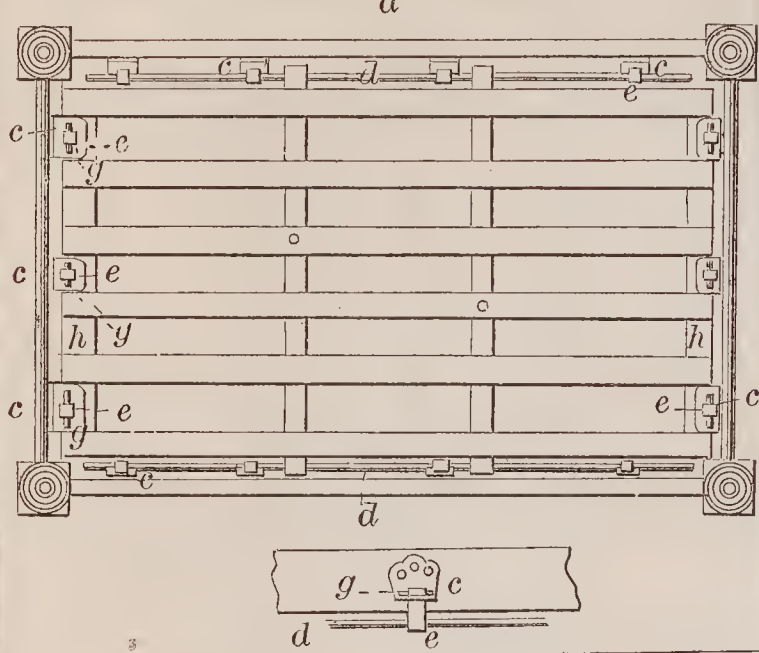 a
c d c
e
c e
g
c e
g
h h
c e e c
g
c
d
g c
d e